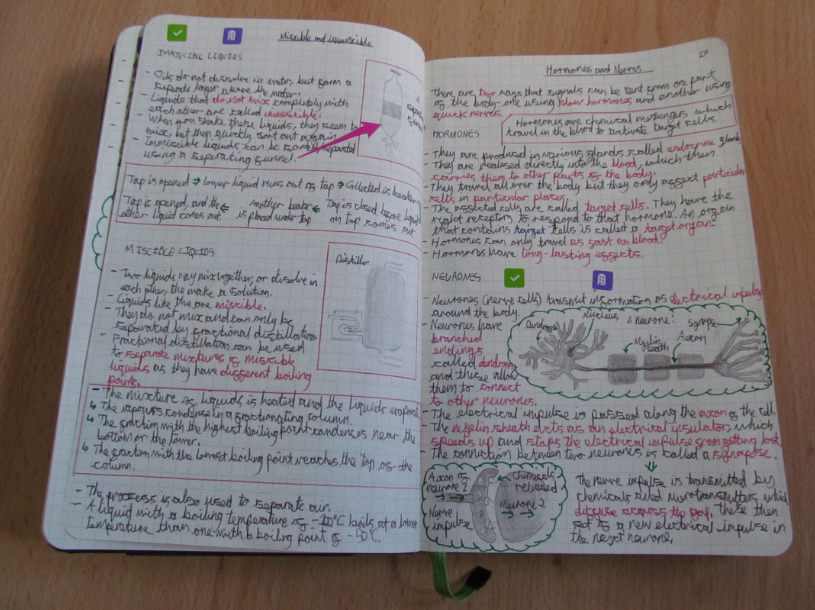 Miscible and Immiscible
IMMISCIBLE LIQUIDS
- Oils do not dissolve in water, but form a
separate layer above the water.
- Liquids that do not mix completely with
each other are called immiscible.
- When you shake these liquids, they seem to
mix, but then quickly sort out again.
- Immiscible liquids can be separated
using a separating funnel.
Tap is opened → Lower liquid runs out of tap → Collected in beaker
Tap is opened, and the other liquid comes out. ← Another beaker is placed under tap ← Tap is closed before liquid on top comes out
MISCIBLE LIQUIDS
Distiller
- Two liquids may mix together, or dissolve in
each other, the make a solution.
- Liquids like this are miscible.
- They do not mix and can only be
separated by fractional distillation
- Fractional distillation can be used
to separate mixtures of miscible
liquids as they have different boiling
points.
- The mixture of liquids is heated and the liquids evaporate
↳ The vapours condense in a fractionating column.
↳ The fraction with the highest boiling point condenses near the
bottom of the tower.
↳ The fraction with the lowest boiling point reaches the top of the
column.
- The process is also used to separate air.
- A liquid with a boiling temperature of boils at a lower
temperature than one with a boiling point of
Hormones and Nerves
There are two ways that signals can be sent from one part
of the body, one using slow hormones and another using
quick nerves.
HORMONES
Hormones are chemical messengers which
travel in the blood to activate target cells
- They are produced in various glands called endocrine glands
- They are released directly into the blood, which then
carries them to other parts of the body.
- They travel all over the body but they only affect particular
cells in particular places.
- The affected cells are called target cells. They have the
right receptors to respond to that hormone. An organ
that contains target cells is called a target organ.
- Hormones can only travel as fast as blood.
- Hormones have long-lasting effects.
NEURONES
- Neurones (nerve cells) transmit information as electrical impulses
around the body.
- Neurones have
branched
endings
called
and these allow
them to connect
to other neurones.
Nucleus
A neurone:
Synapse
Myelin
sheath
Axon
- The electrical impulse is passed along the axon of the cell.
- The myelin sheath acts as an electrical insulator, which
speeds up and stops the electrical impulse from getting lost.
- The connection between two neurones is called a synapse.
Axon of
neurone
Nerve
impulse
Chemicals
released
Neurone 2
The nerve impulse is transmitted by
chemicals called neurotransmitters, which
diffuse across the gap, these then
set to a new electrical impulse in
the next neurone.